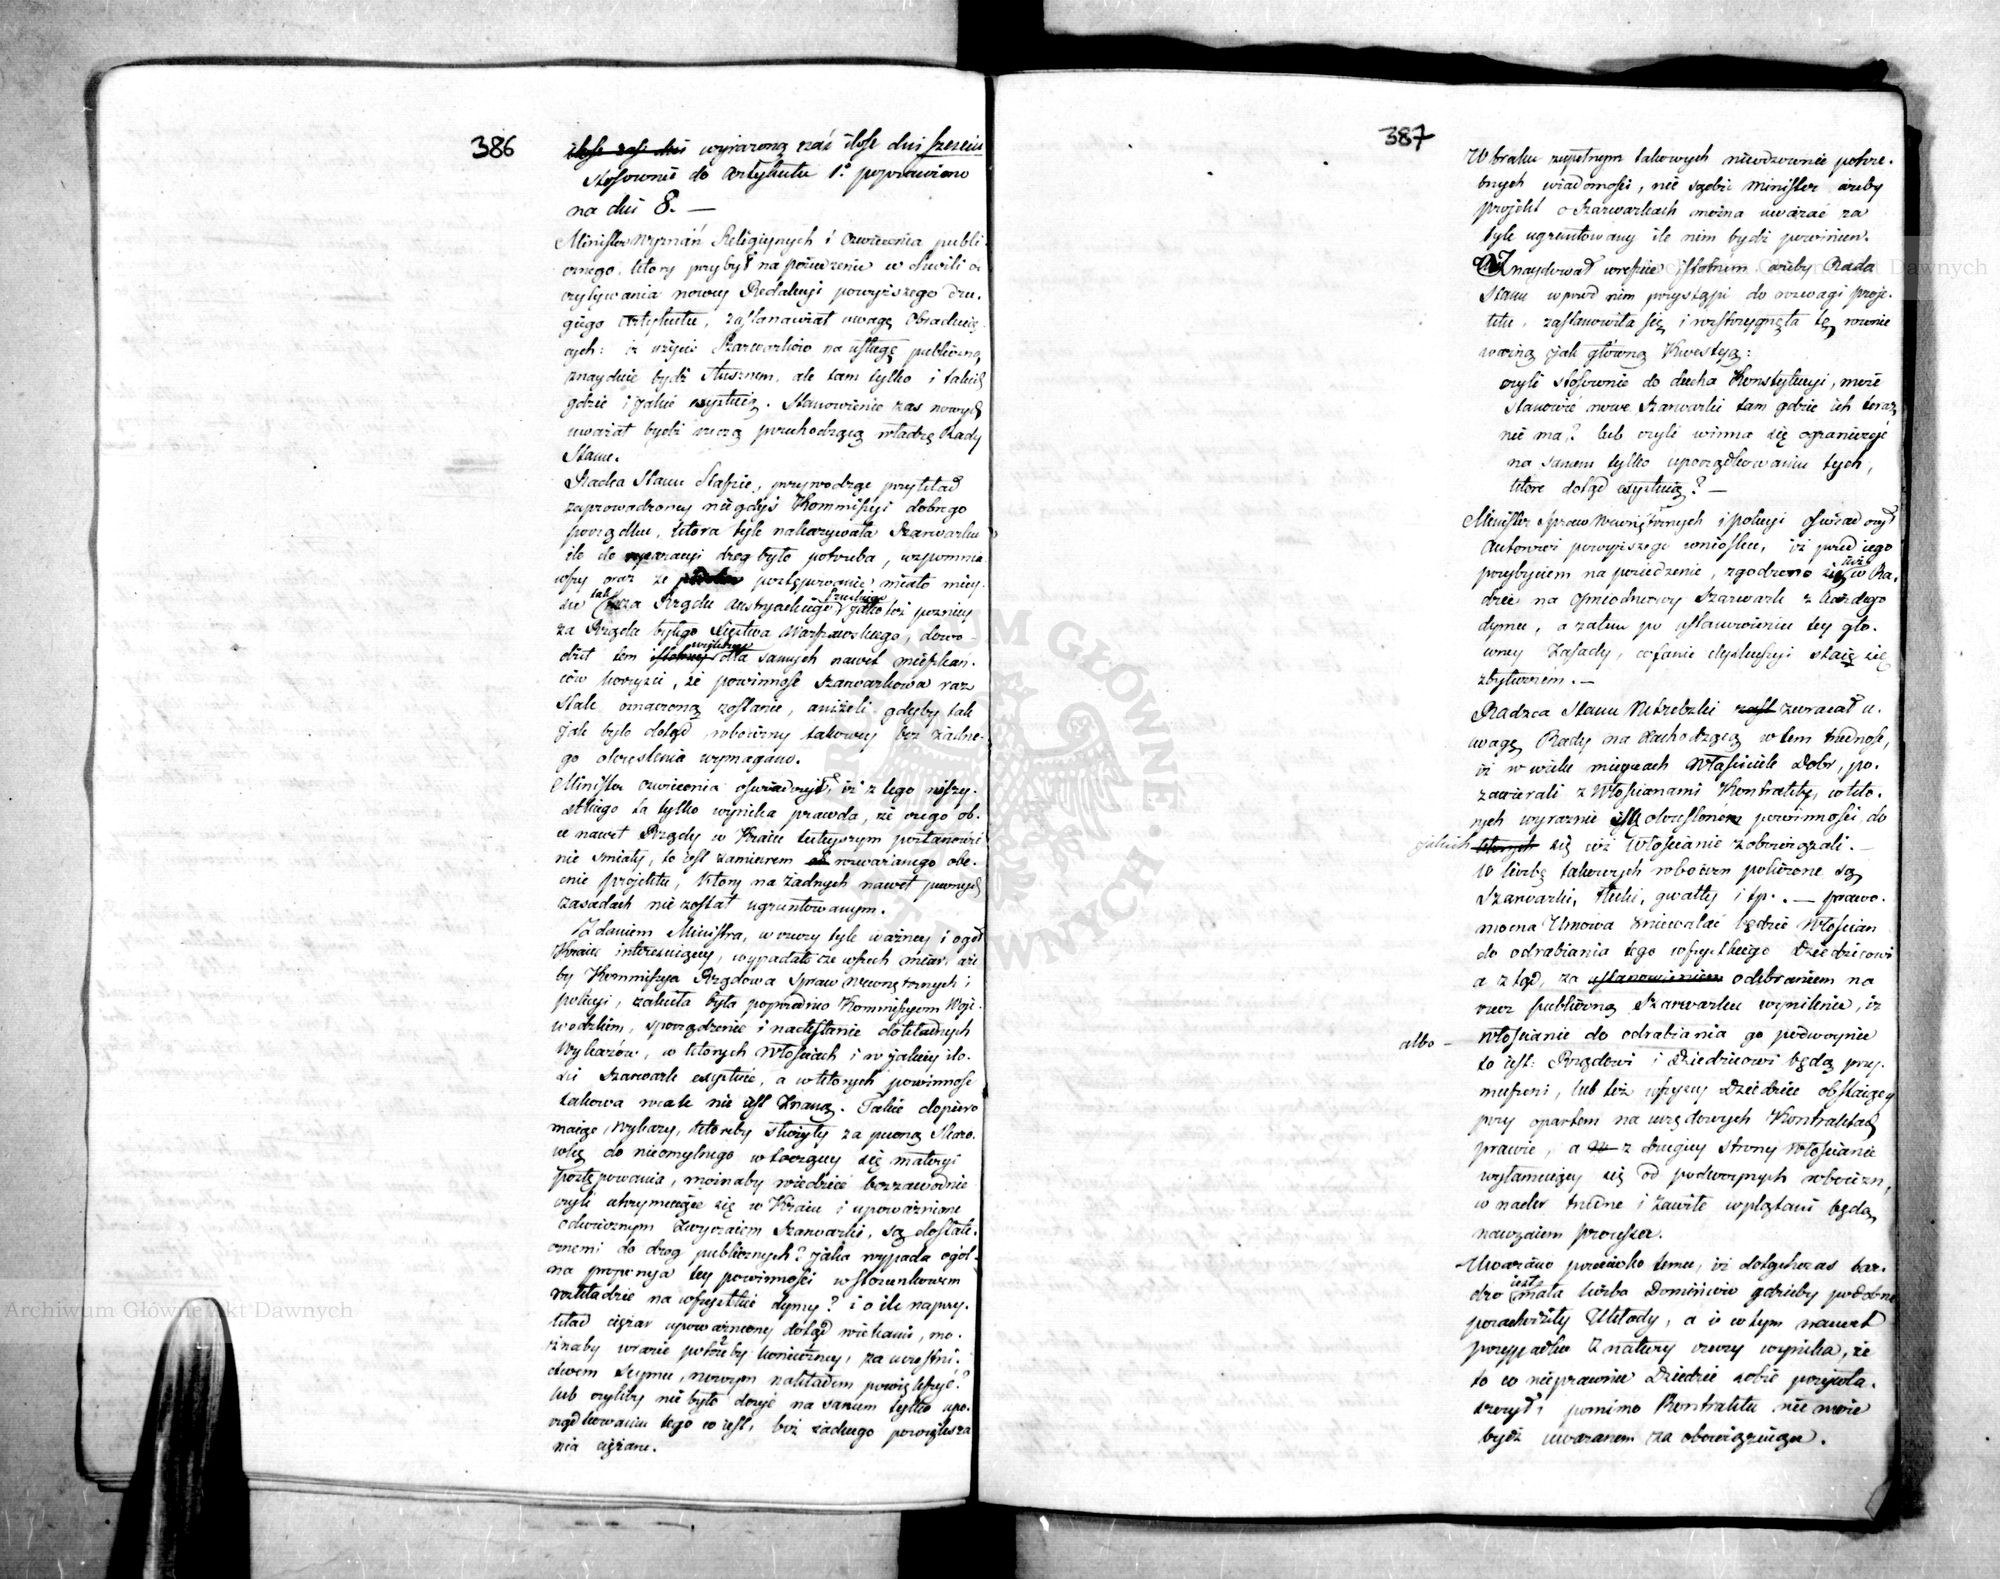 386
ilość zaś dni wyrażoną zaś ilość dni sześciu
stosownie do Artykułu 1º poprawiono
na dni 8. —
Minister Wyznań Religiynych i Oświecenia publi-
cznego, który przybył na posiedzenie w chwili o
czytywania nowey Redakcyi powyższego dru-
giego Artykułu, zastanawiał uwagę Obraduią-
cych: iż użycie Szarwarków na usługę publiczną
znayduie bydź słusznem, ale tam tylko i takich
gdzie i jakie exystuią. Stanowienie zaś nowych
uważał bydź rzeczą przechodzącą władzę Rady
Stanu.
Radca Stanu Staszic, przywodząc przykład
zaprowadzoney niegdyś Kommissyi dobrego
porządku, która tyle nakazywała Szarwarku
ile do reparacyi dróg było potrzeba, wspomnia
wszy oraz że postępowanie miało miey-
sce tak za Rządu Austryackiego Pruskiego jako też pozniey
za Rządu byłego Xięztwa Warszawskiego, dowo-
dził tem istotney większey dla samych nawet mieszkań-
ców korzyści, że powinność Szarwarkowa raz
stale oznaczoną zostanie, aniżeli gdyby tak
jak było dotąd robocizny takowey bez żadne-
go określenia wymagano.
Minister Oświecenia oświadczył, iż z tego wszy-
stkiego ta tylko wynika prawda, że czego ob-
ce nawet Rządy w Kraiu tuteyszym postanowić
nie śmiały, to jest zamiarem rozważanego obe-
cnie projektu, który na żadnych nawet pewnych
zasadach nie został ugruntowanym.
Zdaniem Ministra, w rzeczy tyle ważney i ogół
Kraiu interessuiącey, wypadało ze wszech miar, aże
by Kommissya Rządowa Spraw Wewnętrznych i
policyi, zaleciła była poprzednio Kommissyom Woje-
wodzkim, sporządzenie i nadesłanie dokładnych
Wykazów, w których Włościach i w jakiey ilo-
ści Szarwark exystuie, a w których powinność
takowa wcale nie jest znaną. Takie dopiero
maiąc Wykazy, któreby służyły za pewną Skazo-
wkę do nieomylnego w toczącey się materyi
postępowania, możnaby wiedzieć bezzawodnie
czyli utrzymuiące się w Kraiu i upoważnione
odwiecznym zwyczaiem Szarwarki, są dostate-
cznemi do dróg publicznych? jaka wypada ogól-
na proporcya tey powinności w stosunkowem
rozkładzie na wszystkie dymy? i o ile na przy-
kład ciężar upoważniony dotąd wiekami, mo-
żnaby w razie potrzeby konieczney, za uczestni-
ctwem Seymu, nowym nakładem powiększyć?
lub czyliby nie było dosyć na samem tylko upo-
rządkowaniu tego co jest, bez żadnego powiększa
nia ciężaru.
387
W braku zupełnym takowych nieodzownie potrze-
bnych wiadomości, nie sądzi Minister ażeby
projekt o Szarwarkach można uważać za
tyle ugruntowany ile nim bydź powinien.
Znaydował wreszcie istotnem ażeby Rada
Stanu wprzód nim przystąpi do rozwagi proje-
ktu, zastanowiła się i rozstrzygnęła tę równie
ważną jak główną Kwestyą:
czyli stosownie do ducha Konstytucyi, może
stanowić nowe Szarwarki tam gdzie ich teraz
nie ma? lub czyli winna się ograniczyć
na samem tylko uporządkowaniu tych,
które dotąd exystuią? —
Minister Spraw Wewnętrznych i policyi oświadczył
Autorowi powyższego wniosku, iż przed jego
przybyciem na posiedzenie, zgodzono się już w Ra-
dzie na ośmiodniowy Szarwark z każdego
dymu, a zatem po ustanowieniu tey głó-
wney Zasady, cofanie dyskussyi staie się
zbytecznem. —
Radzca Stanu Nakwaski zwracał u-
wagę Rady na zachodzącą w tem trudność,
iż w wielu mieyscach Właściciele Dóbr, po-
zawierali z Włościanami Kontrakty, w któ-
rych wyraźnie są określone powinności, do
jakich których się też Włościanie zobowiązali. —
W liczbę takowych robocizn policzone są
Szarwarki, tłuki, gwałty i tp. — prawo-
mocna Umowa zniewalać będzie Włościan
do odrabiania tego wszystkiego Dziedzicowi
a ztąd, za ustanowieniem odebraniem na
rzecz publiczną Szarwarku wyniknie, iż
albo — Włościanie do odrabiania go podwóynie
to jest: Rządowi i Dziedzicowi będą przy-
muszeni, lub też wszyscy Dziedzice obstaiący
przy opartem na urzędowych Kontraktach
prawie, a z drugiey strony Włościanie
wyłamuiący się od podwóynych robocizn,
w nader trudne i zawiłe wplątani będą
nawzaiem processa.
Uważano przeciwko temu, iż dotychczas bar-
dzo jest mała liczba Dominiów gdzieby podobne
porachodziły Układy, a iż w tym nawet
przypadku z natury rzeczy wynika, że
to co nieprawnie Dziedzic sobie przywła-
szczył, pomimo Kontraktu nie może
bydź uważanem za obowiązuiące.